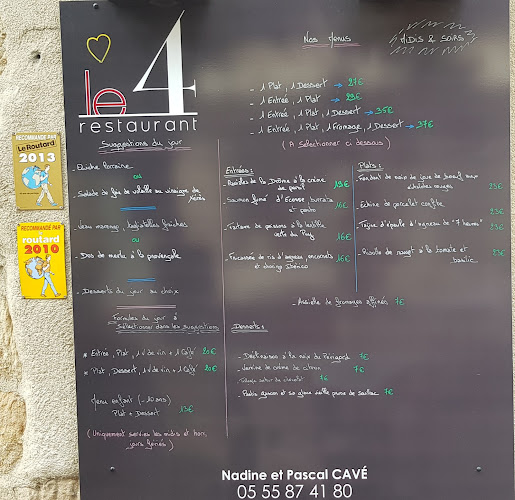 le 4
restaurant
Nos Menus
MIDIS & SOIRS
- 1 Plat, 1 Dessert → 27€
- 1 Entrée, 1 Plat → 29€
- 1 Entrée, 1 Plat, 1 Dessert → 35€
- 1 Entrée, 1 Plat, 1 Fromage, 1 Dessert → 37€
( A Sélectionner ci dessous )
RECOMMANDÉ PAR
Le Routard
2013
RECOMMANDÉ PAR
routard
2010
Suggestions du jour
- Quiche lorraine
ou
- Salade de foie de volaille au vinaigre de
Xérès
- Veau marengo, tagliatelles fraîches
ou
- Dos de merlu à la provençale
- Desserts du jour au choix
Formules du jour à
Sélectionner dans les suggestions
* Entrée, Plat, 1 V de vin + 1 Café 20€
* Plat, Dessert, 1 V de vin + 1 Café 20€
Menu enfant (- 10 ans)
Plat + Dessert 13€
( Uniquement servies les midis et hors
jours fériés )
Entrées :
- Ravioles de la Drôme à la crème
de persil 15€
- Saumon fumé d'Ecosse, burrata
et pesto 16€
- Terrine de poissons à la lentille
verte du Puy 16€
- Fricassée de ris d'agneau, encornets
et chorizo Ibérico 16€
Plats :
- Fondant de noix de joue de boeuf aux
échalotes rouges 23€
- Echine de porcelet confite 23€
- Tajine d'épaule d'agneau de "7 heures" 23€
- Risotto de rouget à la tomate et
basilic 23€
- Assiette de fromages affinés 7€
Desserts :
- Déclinaison à la noix du Périgord 7€
- Verrine de crème de citron 7€
7€
- Pastis gascon et sa glace vieille prune de Souillac 7€
Nadine et Pascal CAVÉ
05 55 87 41 80